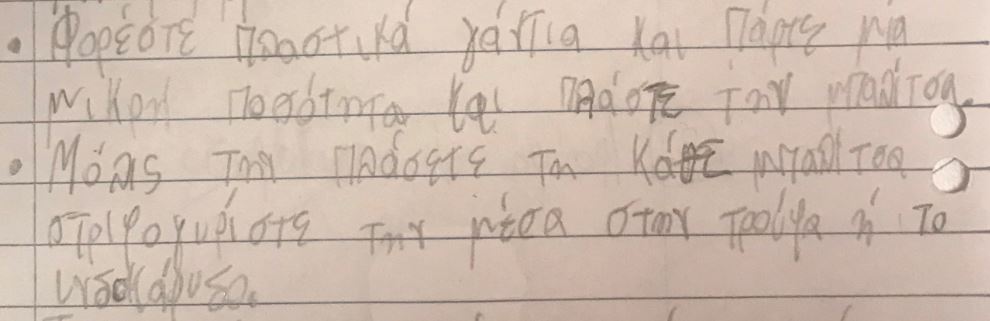 • Φορέστε πλαστικά γάντια και πάρτε μια
μικρή ποσότητα και πλάστε την μπαλίτσα.
• Μόλις την πλάσετε τη κάθε μπαλίτσα
στριφογυρίστε την μέσα στην τρούφα ή το
ινδοκάρυδο.